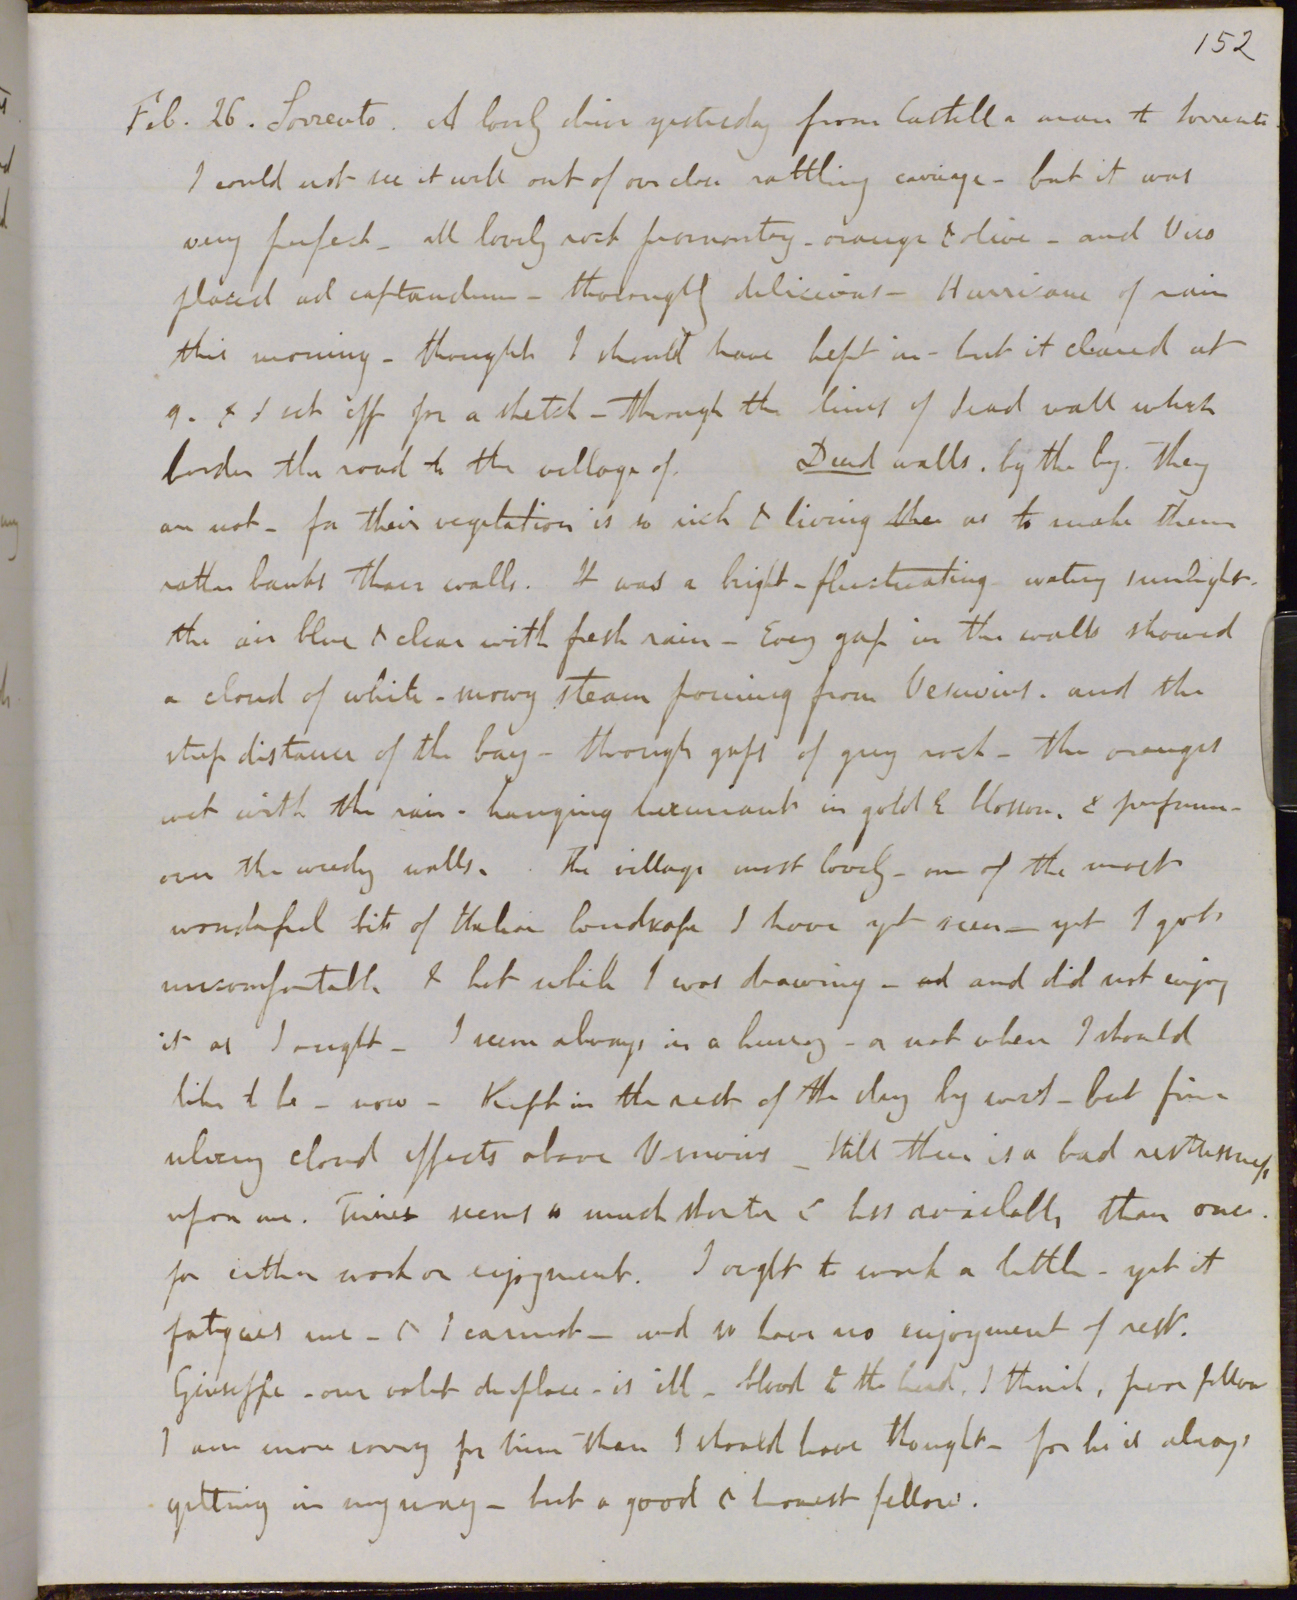 152
Feb. 26. Sorrento. A lovely drive yesterday from Castell a mare to Sorrento.
I could not see it well out of our close rattling carriage - but it was
very perfect - all lovely rock promontory - orange & olive - and Vico
placed ad captandum - thoroughly delicious - Hurricane of rain
this morning - thought I should have kept in - but it cleared at
9. & I set off for a sketch - through the lines of dead wall which
border the road to the village of. Dead walls. by the by. they
are not - for their vegetation is so rich & living as to make them
rather banks than walls. It was a bright - fluctuating - watery sunlight.
the air blue & clear with fresh rain - Every gap in the walls showed
a cloud of white - snowy steam foaming from Vesuvius. and the
steep distance of the bay - through gaps of grey rock - the oranges
wet with the rain - hanging luxuriant in gold & blossom. & perfume -
over the weedy walls. The village most lovely - one of the most
wonderful bits of Italian landscape I have yet seen - yet I got
uncomfortable & hot while I was drawing - ad and did not enjoy
it as I ought - I seem always in a hurry - or not when I should
like to be - now - Kept in the rest of the day by wet - but fine
cloud effects above Vesuvius - Still there is a bad restlessness
upon me. Time seems so much shorter & less available than once.
for either work or enjoyment. I ought to work a little - yet it
fatigues me - & I cannot - and so have no enjoyment of rest.
Giuseppe - our valet de place - is ill - blood to the head, I think, poor fellow
I am more sorry for him than I should have thought - for he is always
getting in my way - but a good & honest fellow.